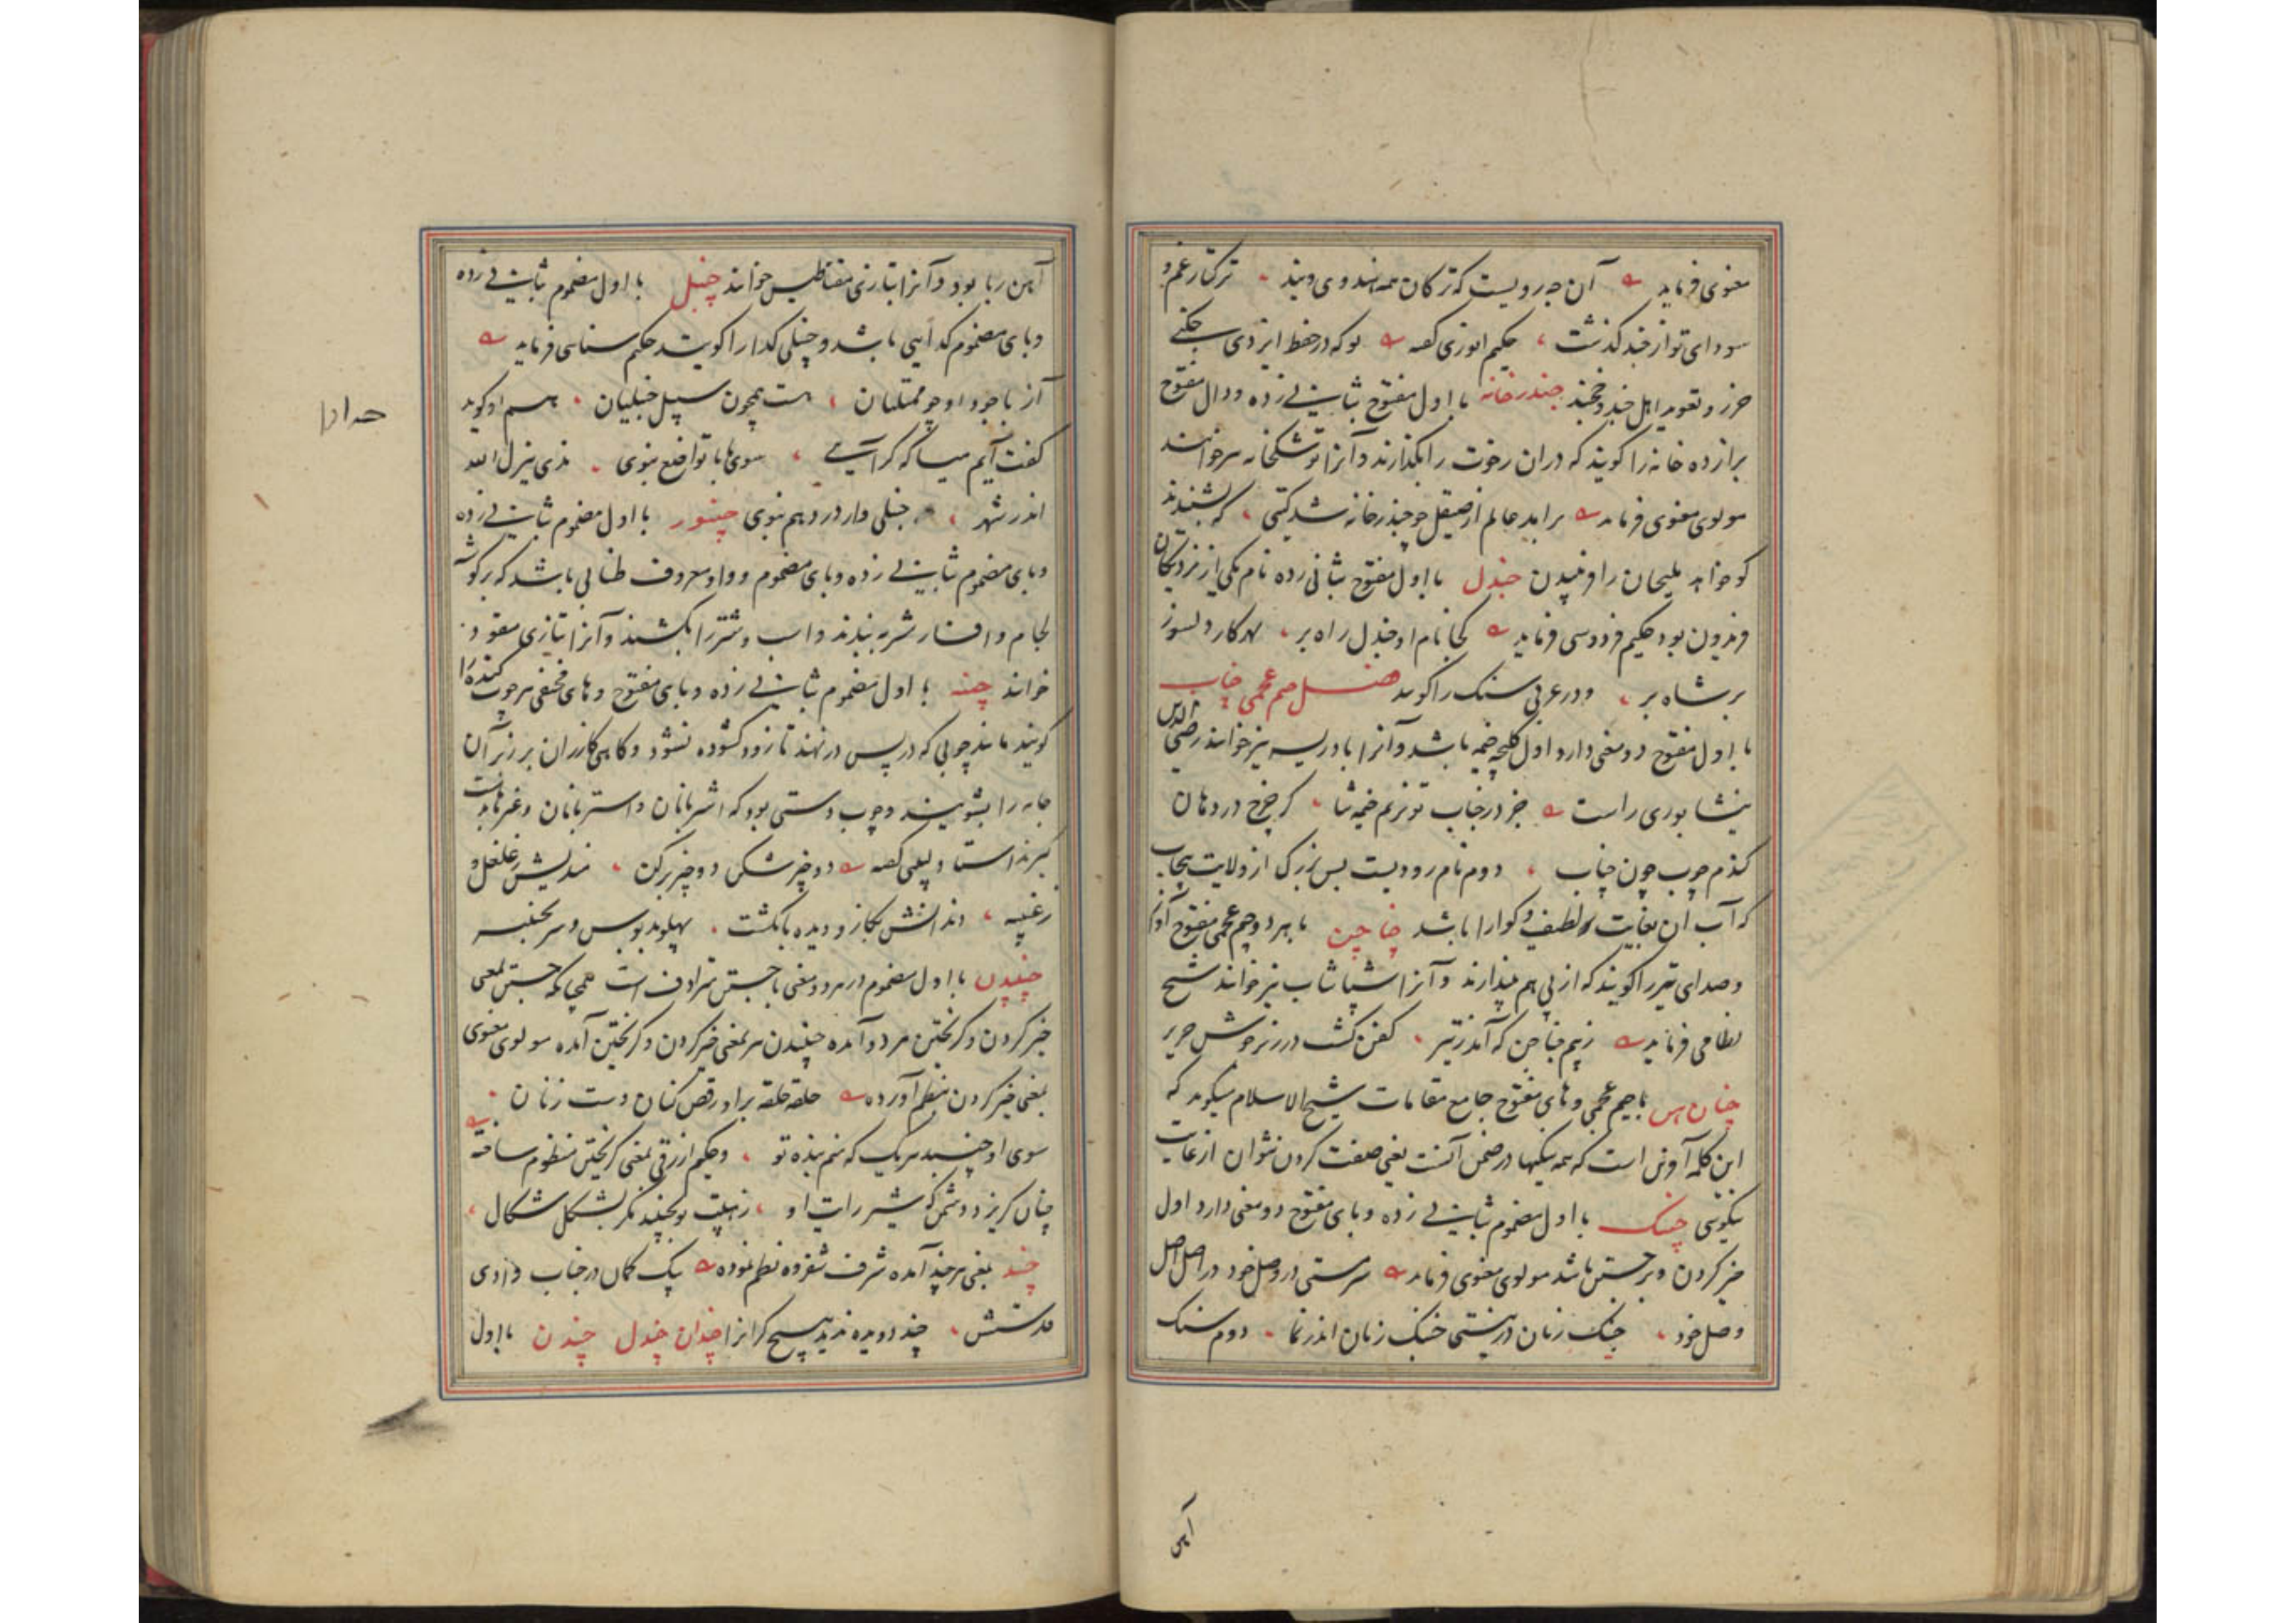 معنوی فرماید آن چه رویست که ترکان همه هندوی ویند ترکتاز غم و
سودای تو از خند گذشت حکیم انوری گفته بو که در حفظ ایزدی
حرز و تعوید اهل جند و خجند جندرخانه با اول مفتوح بثانی زده و دال مفتوح
برا زده خانه را گویند که دران رخوت را بگذارند و آنرا توشکخانه خوانند
مولوی معنوی فرماید برآید عالم از صیقل چو جندرخانه شد گیتی که بشنیدند
کو خواهد سلیمان را و جندل با اول مفتوح بثانی زده نام یکی از نزدیکان
فریدون بود حکیم فردوسی فرماید کجا نام او جندل راه بر بهر کار دلسوز
بر شاه بر و در عربی سنک را گویند فصل جیم عجمی چناب
با اول مفتوح دو معنی دارد اول کلیچه خیمه باشد و آنرا بادریسه نیز خوانند رضی الدین
نیشابوری راست جز در جناب تو نزنم خیمه ثنا کر چرخ در دهان
کندم چوب چون چناب دوم نام رودیست بس بزرک از ولایت پنجاب
که آب آن بغایت لطیف و کوارا باشد چاچن با هر دو جیم عجمی مفتوح آواز
و صدای تیر را گویند که از پی هم بیندازند و آنرا شپاشاب نیز خوانند شیخ
نظامی فرماید زبیم که آمد زتیر کفن کشت در زیر جوشن حریر
چنان هس با جیم عجمی و های مفتوح جامع مقامات شیخ الاسلام میکوید که
این کلمه است که همه نیکیها در ضمن آنست یعنی صفت کردن نتوان از غایت
نیکوئی چنبک با اول مضموم بثانی زده و بای مفتوح دو معنی دارد اول
خیز کردن و برجستن باشد مولوی معنوی فرماید سرمستی در وصل خود در اصل اصل
وصل خود چنبک زنان در نیستی چنبک زنان اندر نما دوم سنک
آهن
آهن ربا بود و آنرا بتازی مقناطیس خوانند چنبل با اول مضموم بثانی زده
و بای مضموم کدایی باشد و چنبلی کدا را گویند حکیم سنائی فرماید
آز با جود او چو ممتلئان هست همچون سپیل چنبلیان هم او گوید
کفت آیم میا که کر آیی سوی ما با تواضع نبوی
اندر شهر چنبلی وار در دهم نبوی چنبور با اول مضموم بثانی زده
و بای مضموم بثانی زده و بای مضموم و واو معروف طنابی باشد که بر کوشه
لجام و افسار ببندند و اسب و شتر را بکشند و آنرا بتازی مقود
خوانند چنبه با اول مضموم بثانی زده و بای مفتوح و های مختفی هر چوب کنده را
گویند مانند چوبی که در پس در نهند تا زود کشوده نشود و کاهی کازران بر زبر آن
جامه را بشویند و چوب دستی بود که اشتربانان و استربانان و غیرها بدست
گیرند استاد لبیبی کفته دو چیزش شکن دو چیزش بکن مندیش ز غلغل و
ز غنبه دندانش بکاز و دیده بانکشت پهلو بدبوس و سر بچنبه
چنبیدن با اول مضموم در هر دو معنی با جستن مترادف است همچنانکه جستن بمعنی
خیز کردن و کریختن هر دو آمده چنبیدن هم بمعنی خیز کردن و کریختن آمده مولوی معنوی
بمعنی خیز کردن بنظم آورده حلقه حلقه بر او رقص کنان دست زنان
سوی او چنبد هر یک که منم بنده تو و حکیم ازرقی بمعنی کریختن منظوم ساخته
چنان کریزد دشمن که شیر رایت او زهیبت تو بچنبد مکر بشکل شکال
چند بمعنی هر چند آمده شرف شفروه نظم نموده یک کمان در جناب دادی
چند دویده ندید هیچ کرانرا چندان چندل چندن با اول
چندان